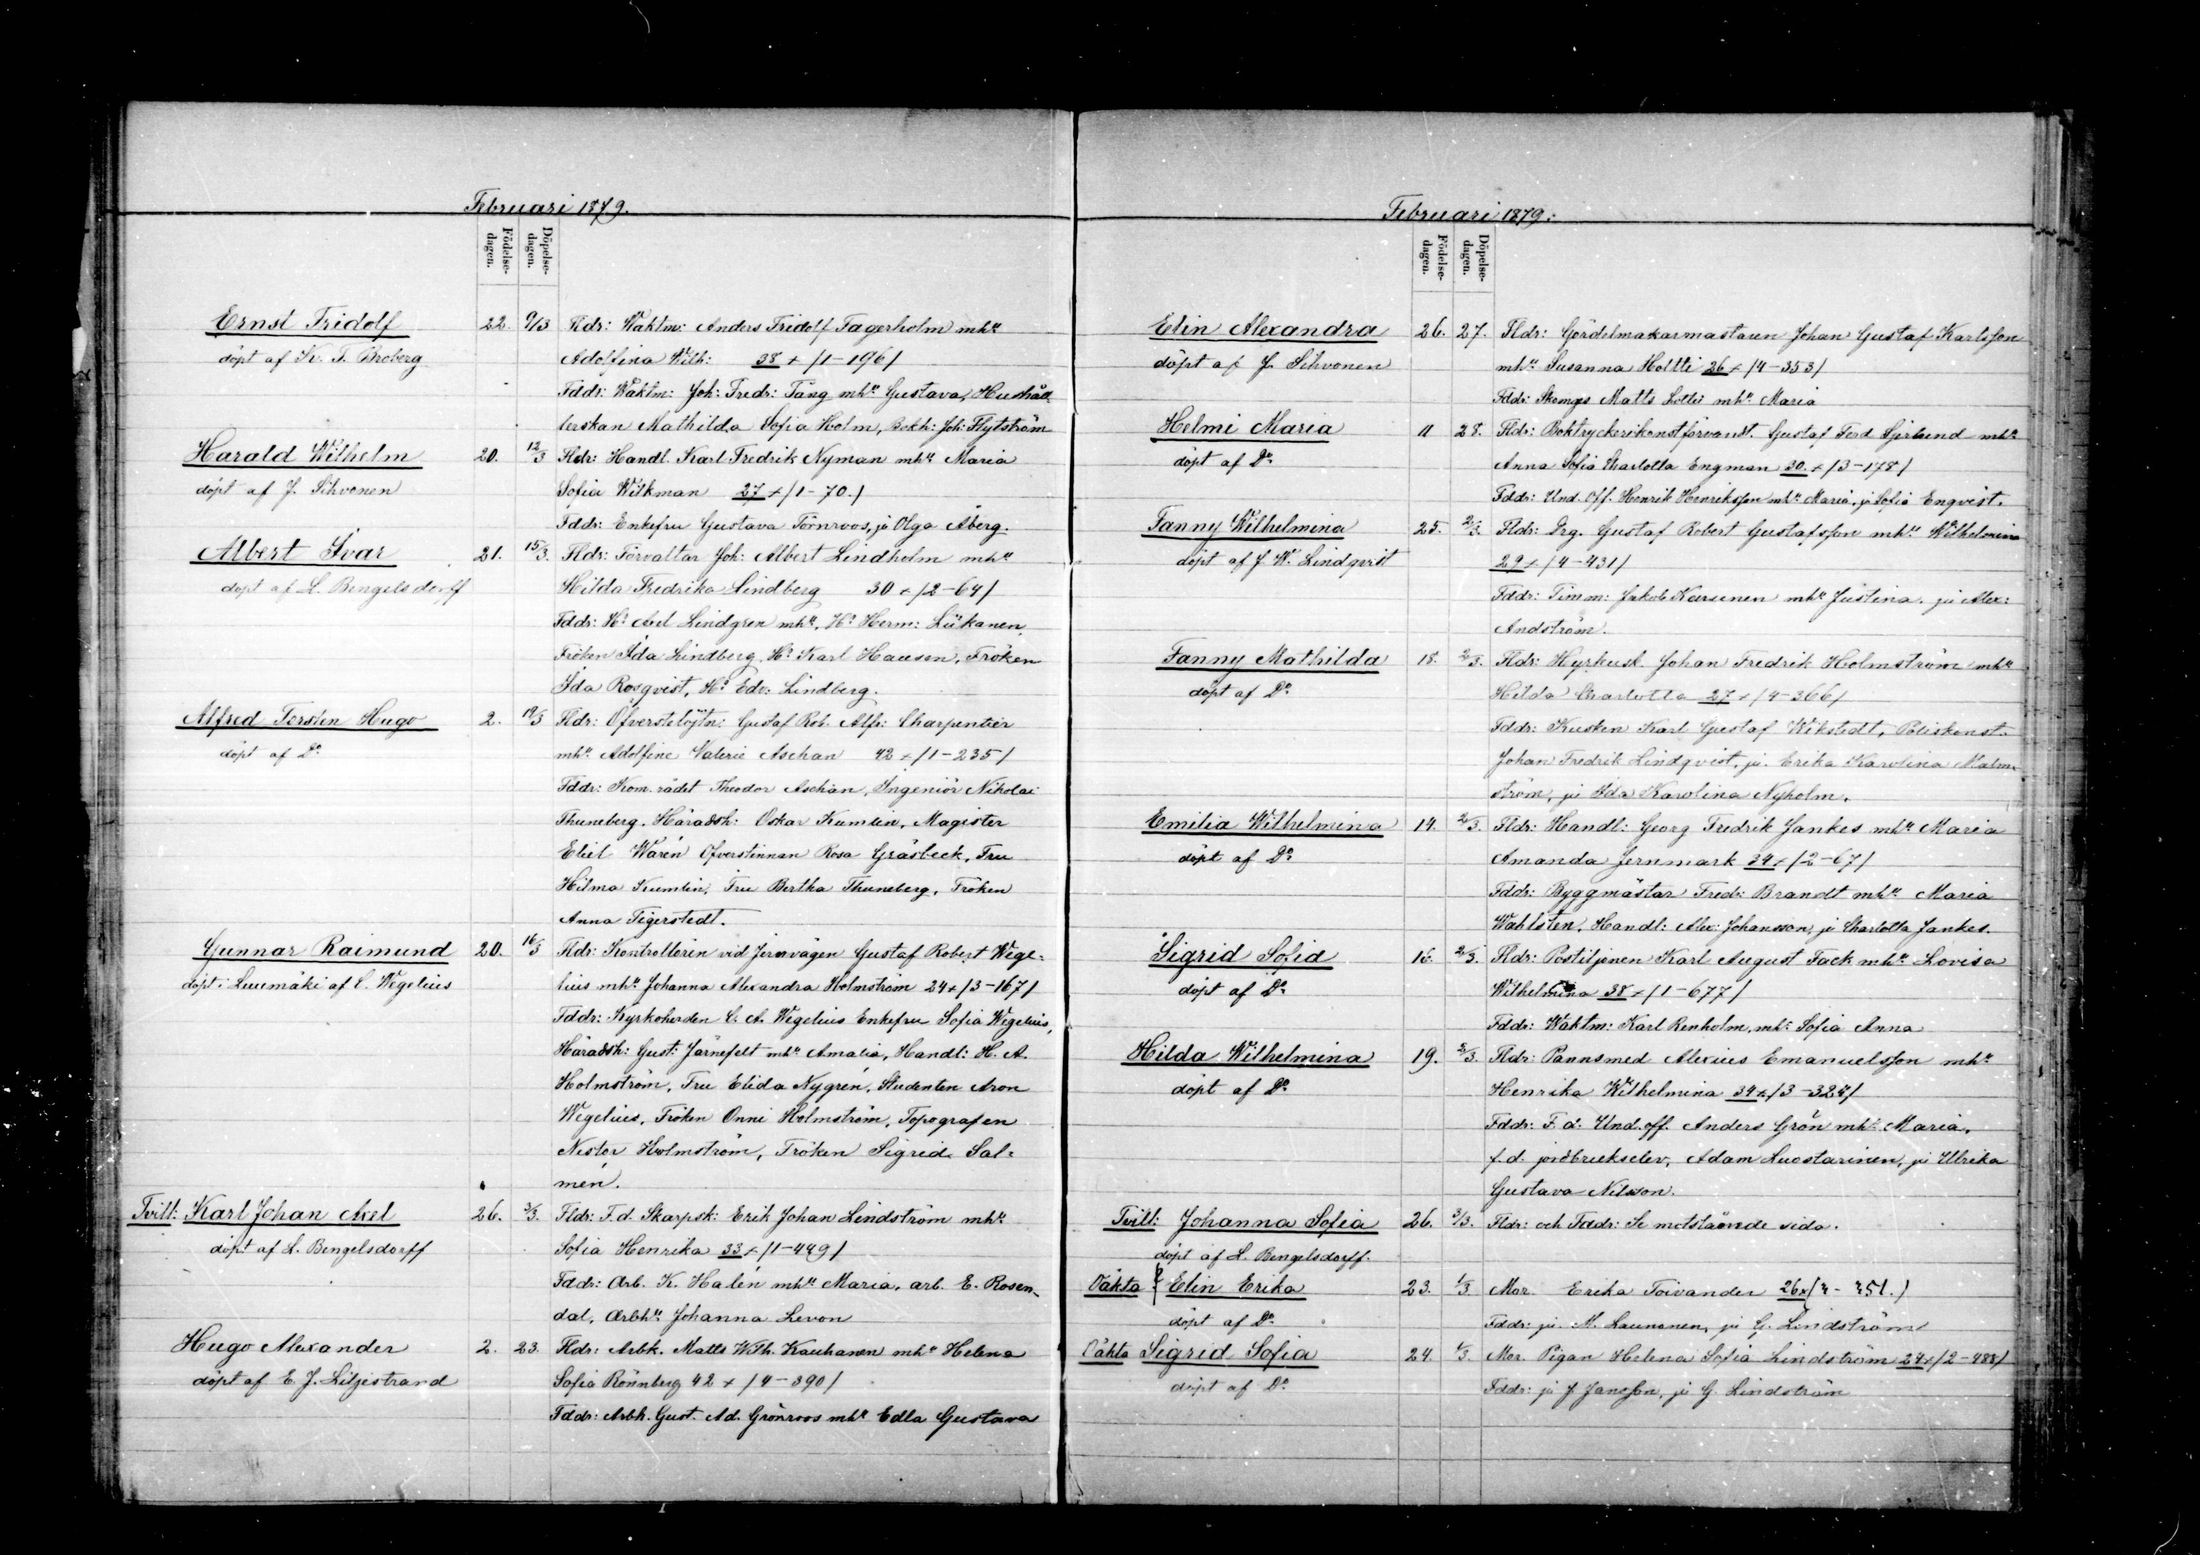 Februari 1879.
Födelse-
dagen.
Döpelse-
dagen.
Ernst Fridolf
22. 9/13
döpt af K. T. Broberg
Fldr: Waktm: Anders Fridolf Fagerholm mhu
Adolfina Wilh: 38 + /1-196/
Fddr: Waktm: Joh: Fredr: Tång mhu Gustava, Hushål-
lerskan Mathilda Sofia Holm, Bokh: Joh: Flytström
Harald Wilhelm
20. 12/3
döpt af J. Sihvonen
Fldr: Handl. Karl Fredrik Nyman mhu Maria
Sofia Wilkman 27 + /1-70./
Fddr: Enkefru Gustava Törnroos, jfr Olga Åberg.
Albert Ivar
21. 15/3.
döpt af L. Bengelsdorff
Fldr: Förvaltar Joh: Albert Lindholm mhu
Hilda Fredrika Lindberg 30 + /2-64/
Fddr: Hr Axel Lindgren mhu, Hr Herm: Lükanen,
Fröken Ida Lindberg, Hr Karl Hausen, Fröken
Ida Rosqvist, Hr Edv: Lindberg.
Alfred Torsten Hugo
2. 19/3
döpt af Do
Fldr: Öfverstelöjtn: Gustaf Rob. Alfr: Charpentier
mhu Adolfine Valerie Aschan 42 + /1-235/
Fddr: Kom. rådet Theodor Aschan, Ingeniör Nikolai
Thuneberg, Häradsh: Oskar Kumlin, Magister
Eliel Warén Öfverstinnan Rosa Gräsbeck, Fru
Hilma Kumlin, Fru Bertha Thuneberg, Fröken
Anna Tigerstedt.
Gunnar Raimund
20. 16/3
döpt i Luumäki af C. Wegelius
Fldr: Kontrollören vid Jernvägen Gustaf Robert Wege-
lius mhu Johanna Alexandra Holmström 24 + /3-167/
Fddr: Kyrkoherden C. A. Wegelius Enkefru Sofia Wegelius,
Häradsh: Gust: Järnefelt mhu Amalia, Handl: H. A.
Holmström, Fru Elida Nygrén, Studenten Aron
Wegelius, Fröken Onni Holmström, Topografen
Nestor Holmström, Fröken Sigrid Sal-
mén.
Tvill: Karl Johan Axel
26. 3/3.
döpt af L. Bengelsdorff
Fldr: F.d. Skarpsk: Erik Johan Lindström mhu
Sofia Henrika 33 + /1-449/
Fddr: Arb. K. Halén mhu Maria, arb. E. Rosen-
dal, Arbhu Johanna Levon
Hugo Alexander
2. 23.
döpt af E. J. Liljestrand
Fldr: Arbk. Matts Wilh. Kauhanen mhu Helena
Sofia Rönnberg 42 + /4-390/
Fddr: Arbk. Gust. Ad. Grönroos mhu Edla Gustava
Februari 1879.
Födelse-
dagen.
Döpelse-
dagen.
Elin Alexandra
26. 27.
döpt af J. Sihvonen
Fldr: Gördelmakarmästaren Johan Gustaf Karlsson
mhu Susanna Holtti 26 + /4-353/
Fddr: Skomges Matts Lottis mhu Maria
Helmi Maria
11 28.
döpt af Do
Fldr: Boktryckerikonstförvant. Gustaf Ferd Sjrlund mhu
Anna Sofia Charlotta Engman 30. + /3-178/
Fddr: Und. Off. Henrik Henriksson mhu Maria, jfr Sofia Enqvist.
Fanny Wilhelmina
25. 2/3.
döpt af J. W. Lindqvist
Fldr: Drg. Gustaf Robert Gustafsson mhu Wilhelmina
29 + /4-431/
Fddr: Timm: Jakob Karsinen mhu Justina, jfr Alex:
Andström.
Fanny Mathilda
18. 2/3.
döpt af Do
Fldr: Hyrkusk. Johan Fredrik Holmström mhu
Hilda Charlotta 27 + /4-366/
Fddr: Kusken Karl Gustaf Wikstedt, Poliskonst.
Johan Fredrik Lindqvist, jfr. Erika Karolina Malm-
ström, jfr Ida Karolina Nyholm.
Emilia Wilhelmina
14. 2/3.
döpt af Do
Fldr: Handl: Georg Fredrik Jankes mhu Maria
Amanda Jernmark 34 + /2-67/
Fddr: Byggmästar Fredr: Brandt mhu Maria
Wahlsten, Handl: Alex: Johansson, jfr Charlotta Jankes.
Sigrid Sofia
16. 2/3.
döpt af Do
Fldr: Postiljonen Karl August Fack mhu Lovisa
Wilhelmina 38 + /1-677/
Fddr: Waktm: Karl Renholm, mhu Sofia Anna
Hilda Wilhelmina
19. 2/3.
döpt af Do
Fldr: Pannsmed Alexius Emanuelsson mhu
Henrika Wilhelmina 34 + /3-324/
Fddr: F. d. Und. off. Anders Grön mhu Maria,
f. d. jordbrukselev, Adam Luostarinen, jfr Ulrika
Gustava Nilsson.
Tvill: Johanna Sofia
26. 3/3.
döpt af L. Bengelsdorff.
Fldr: och Fddr: Se motstående sida.
Oäkta Elin Erika
23. 1/3
döpt af Do
Mor Erika Toivander 26 +
Fddr: jfr. M. Launonen, jfr G. Lindström
Oäkta Sigrid Sofia
24. 1/3.
döpt af Do
Mor. Pigan Helena Sofia Lindström 24 + /2-488/
Fddr: jfr J Jansson, jfr G. Lindström